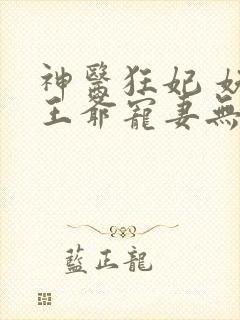 神醫狂妃
王爺寵妻無
藍正龍